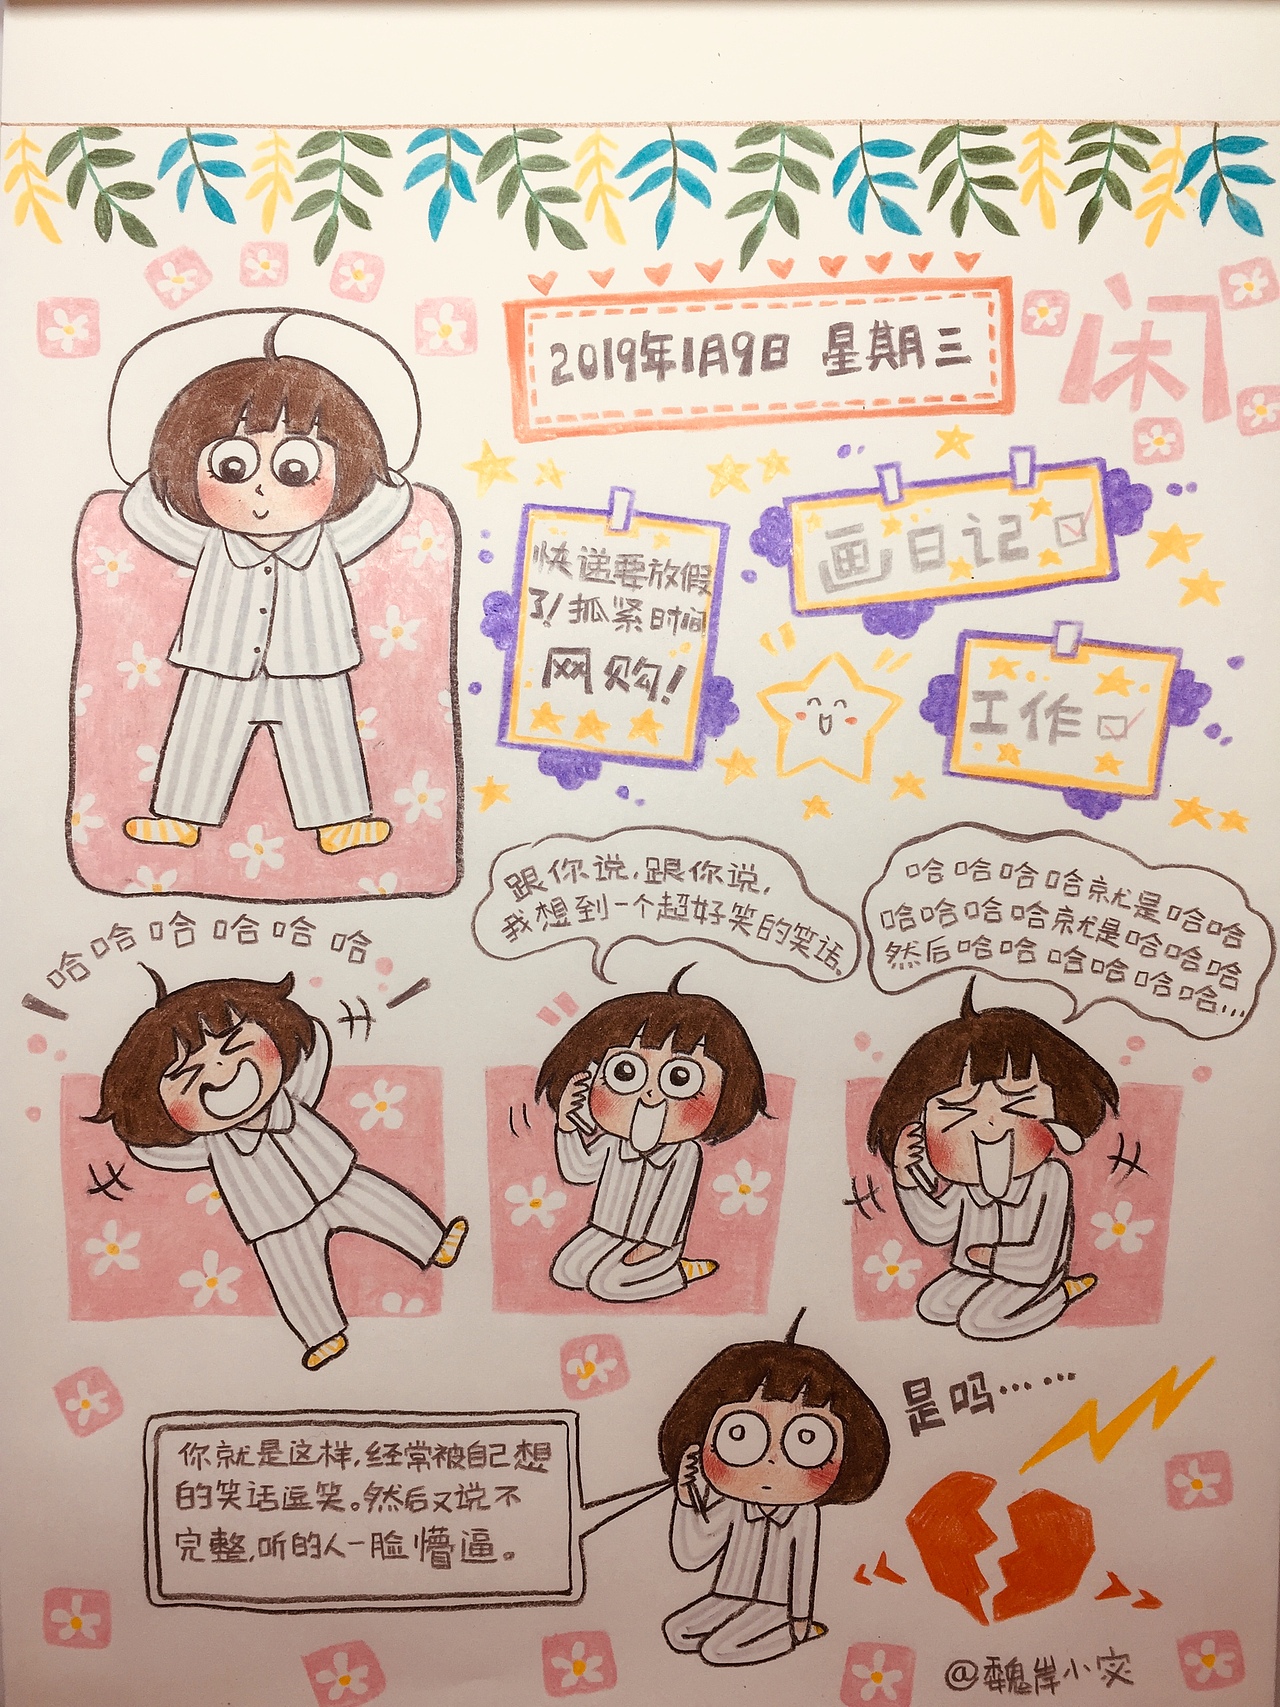 2019年1月9日 星期三
闲
画日记
快递要放假
了!抓紧时间
网购!
工作
跟你说,跟你说,
我想到一个超好笑的笑话。
哈哈哈哈就是哈哈
哈哈哈哈就是哈哈哈
然后哈哈哈哈哈哈哈...
哈哈哈哈哈哈
是吗……
你就是这样,经常被自己想
的笑话逗笑。然后又说不
完整,听的人一脸懵逼。
@魏岸小寀